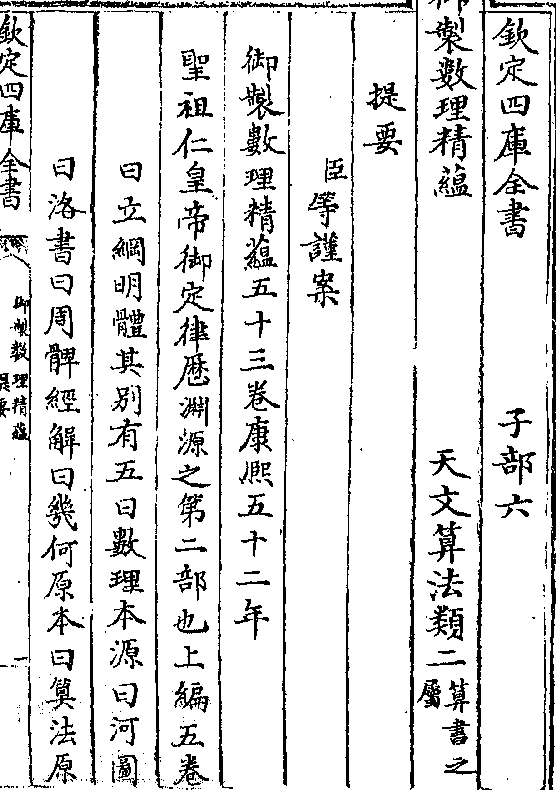 欽定四庫全書 子部六
御製數理精蘊 天文算法類二算書之屬
提要
臣等謹案
御製數理精蘊五十三卷康熙五十二年
聖祖仁皇帝御定律厯淵源之第二部也上編五卷
曰立綱明體其别有五曰數理本源曰河圖
曰洛書曰周髀經解曰幾何原本曰算法原
欽定四庫全書
御製數理精蘊
提要
一